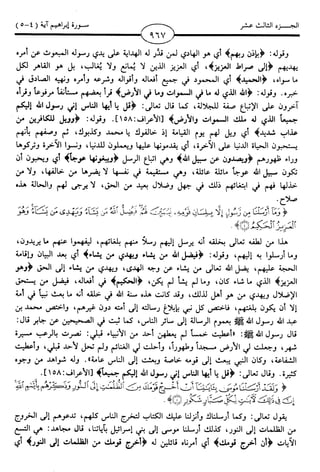 الجـزء الثالث عشر
٩٦٧
سورة إبراهيم آية (٤-٥)
وقوله: ﴿بإذن ربهم﴾ أي هو الهادي لمن قدَّر له الهداية على يدي رسوله المبعوث عن أمره
يهديهم ﴿إلى صراط العزيز﴾، أي العزيز الذين لا يُمانع ولا يُغالب، بل هو القاهر لكل
ما سواه، ﴿الحميد﴾ أي المحمود في جميع أفعاله وأقواله وشرعه وأمره ونهيه الصادق في
خبره. وقوله: ﴿الله الذي له ما في السموات وما في الأرض﴾ قرأ بعضهم مستأنفاً مرفوعاً وقرأه
آخرون على الإتباع صفة للجلالة، كما قال تعالى: ﴿قل يا أيها الناس إني رسول الله إليكم
جميعاً الذي له ملك السموات والأرض﴾ [الأعراف:١٥٨]. وقوله: ﴿وويل للكافرين من
عذاب شديد﴾ أي ويل لهم يوم القيامة إذ خالفوك يا محمد وكذبوك، ثم وصفهم بأنهم
يستحبون الحياة الدنيا على الآخرة، أي يقدمونها عليها ويعملون للدنيا، ونسوا الآخرة وتركوها
وراء ظهورهم ﴿ويصدون عن سبيل الله﴾ وهي اتباع الرسل ﴿ويبغونها عوجاً﴾ أي ويحبون أن
تكون سبيل الله عوجاً مائلة عائلة، وهي مستقيمة في نفسها لا يضرها من خالفها، ولا من
خذلها فهم في ابتغائهم ذلك في جهل وضلال بعيد من الحق، لا يرجى لهم والحالة هذه
صلاح.
﴿ وَمَا أَرْسَلْنَا مِن رَّسُولٍ إِلَّا بِلِسَانِ قَوْمِهِ لِيُبَيِّنَ لَهُمْ فَيُضِلُّ اللَّهُ مَن يَشَاءُ وَيَهْدِي مَن يَشَاءُ وَهُوَ
الْعَزِيزُ الْحَكِيمُ ﴾
هذا من لطفه تعالى بخلقه أنه يرسل إليهم رسلاً منهم بلغاتهم، ليفهموا عنهم ما يريدون،
وما أرسلوا به إليهم، وقوله: ﴿فيضل الله من يشاء ويهدي من يشاء﴾ أي بعد البيان وإقامة
الحجة عليهم، يضل الله تعالى من يشاء عن وجه الهدى، ويهدي من يشاء إلى الحق ﴿وهو
العزيز﴾ الذي ما شاء كان، وما لم يشأ لم يكن، ﴿الحكيم﴾ في أفعاله، فيضل من يستحق
الإضلال ويهدي من هو أهل لذلك، وقد كانت هذه سنة الله في خلقه أنه ما بعث نبياً في أمة
إلا أن يكون بلغتهم، فاختص كل نبي بإبلاغ رسالته إلى أمته دون غيرهم، واختص محمد بن
عبد الله رسول الله ﷺ بعموم الرسالة إلى سائر الناس، كما ثبت في الصحيحين عن جابر قال:
قال رسول الله ﷺ: «أعطيت خمساً لم يعطهن أحد من الأنبياء قبلي: نصرت بالرعب مسيرة
شهر، وجعلت لي الأرض مسجداً وطهوراً، وأحلت لي الغنائم ولم تحل لأحد قبلي، وأعطيت
الشفاعة، وكان النبي يبعث إلى قومه خاصة وبعثت إلى الناس عامة». وله شواهد من وجوه
كثيرة. وقال تعالى: ﴿قل يا أيها الناس إني رسول الله إليكم جميعاً﴾ [الأعراف:١٥٨].
﴿ وَلَقَدْ أَرْسَلْنَا مُوسَىٰ بِآيَاتِنَا أَنْ أَخْرِجْ قَوْمَكَ مِنَ الظُّلُمَاتِ إِلَى النُّورِ وَذَكِّرْهُم بِأَيَّامِ اللَّهِ إِنَّ
فِي ذَٰلِكَ لَآيَاتٍ لِّكُلِّ صَبَّارٍ شَكُورٍ ﴾
يقول تعالى: وكما أرسلناك وأنزلنا عليك الكتاب لتخرج الناس كلهم، تدعوهم إلى الخروج
من الظلمات إلى النور، كذلك أرسلنا موسى إلى بني إسرائيل بآياتنا، قال مجاهد: هي التسع
الآيات ﴿أن أخرج قومك﴾ أي أمرناه قائلين له ﴿أخرج قومك من الظلمات إلى النور﴾ أي